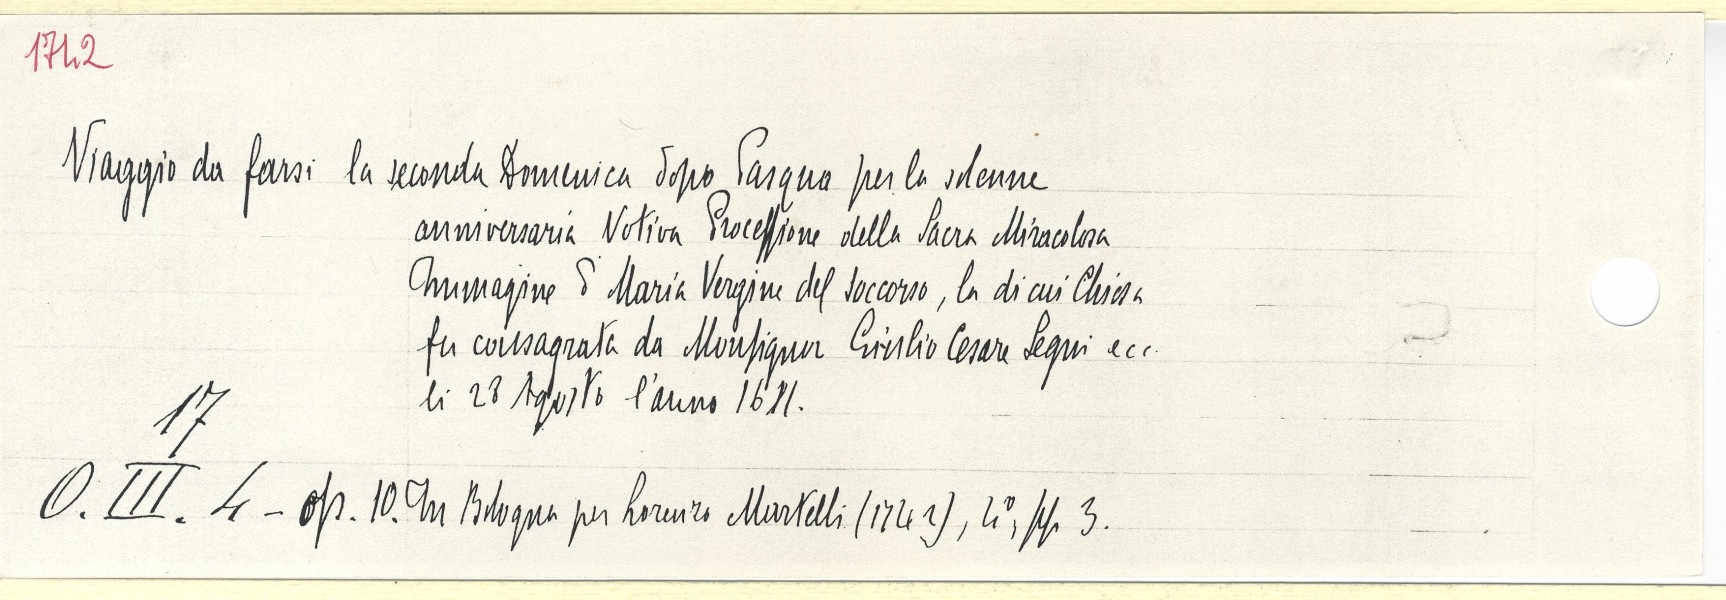 1742
Viaggio da farsi la seconda Domenica dopo Pasqua per la solenne
anniversaria Votiva Processione della Sacra Miracolosa
Immagine di Maria Vergine del Soccorso, la di cui Chiesa
fu consagrata da Monsignor Giulio Cesare Segni ecc.
li 28 Agosto l'anno
17
O. III. 4 - op. 10. In Bologna per Lorenzo Martelli (1742), 4°, pp. 3.